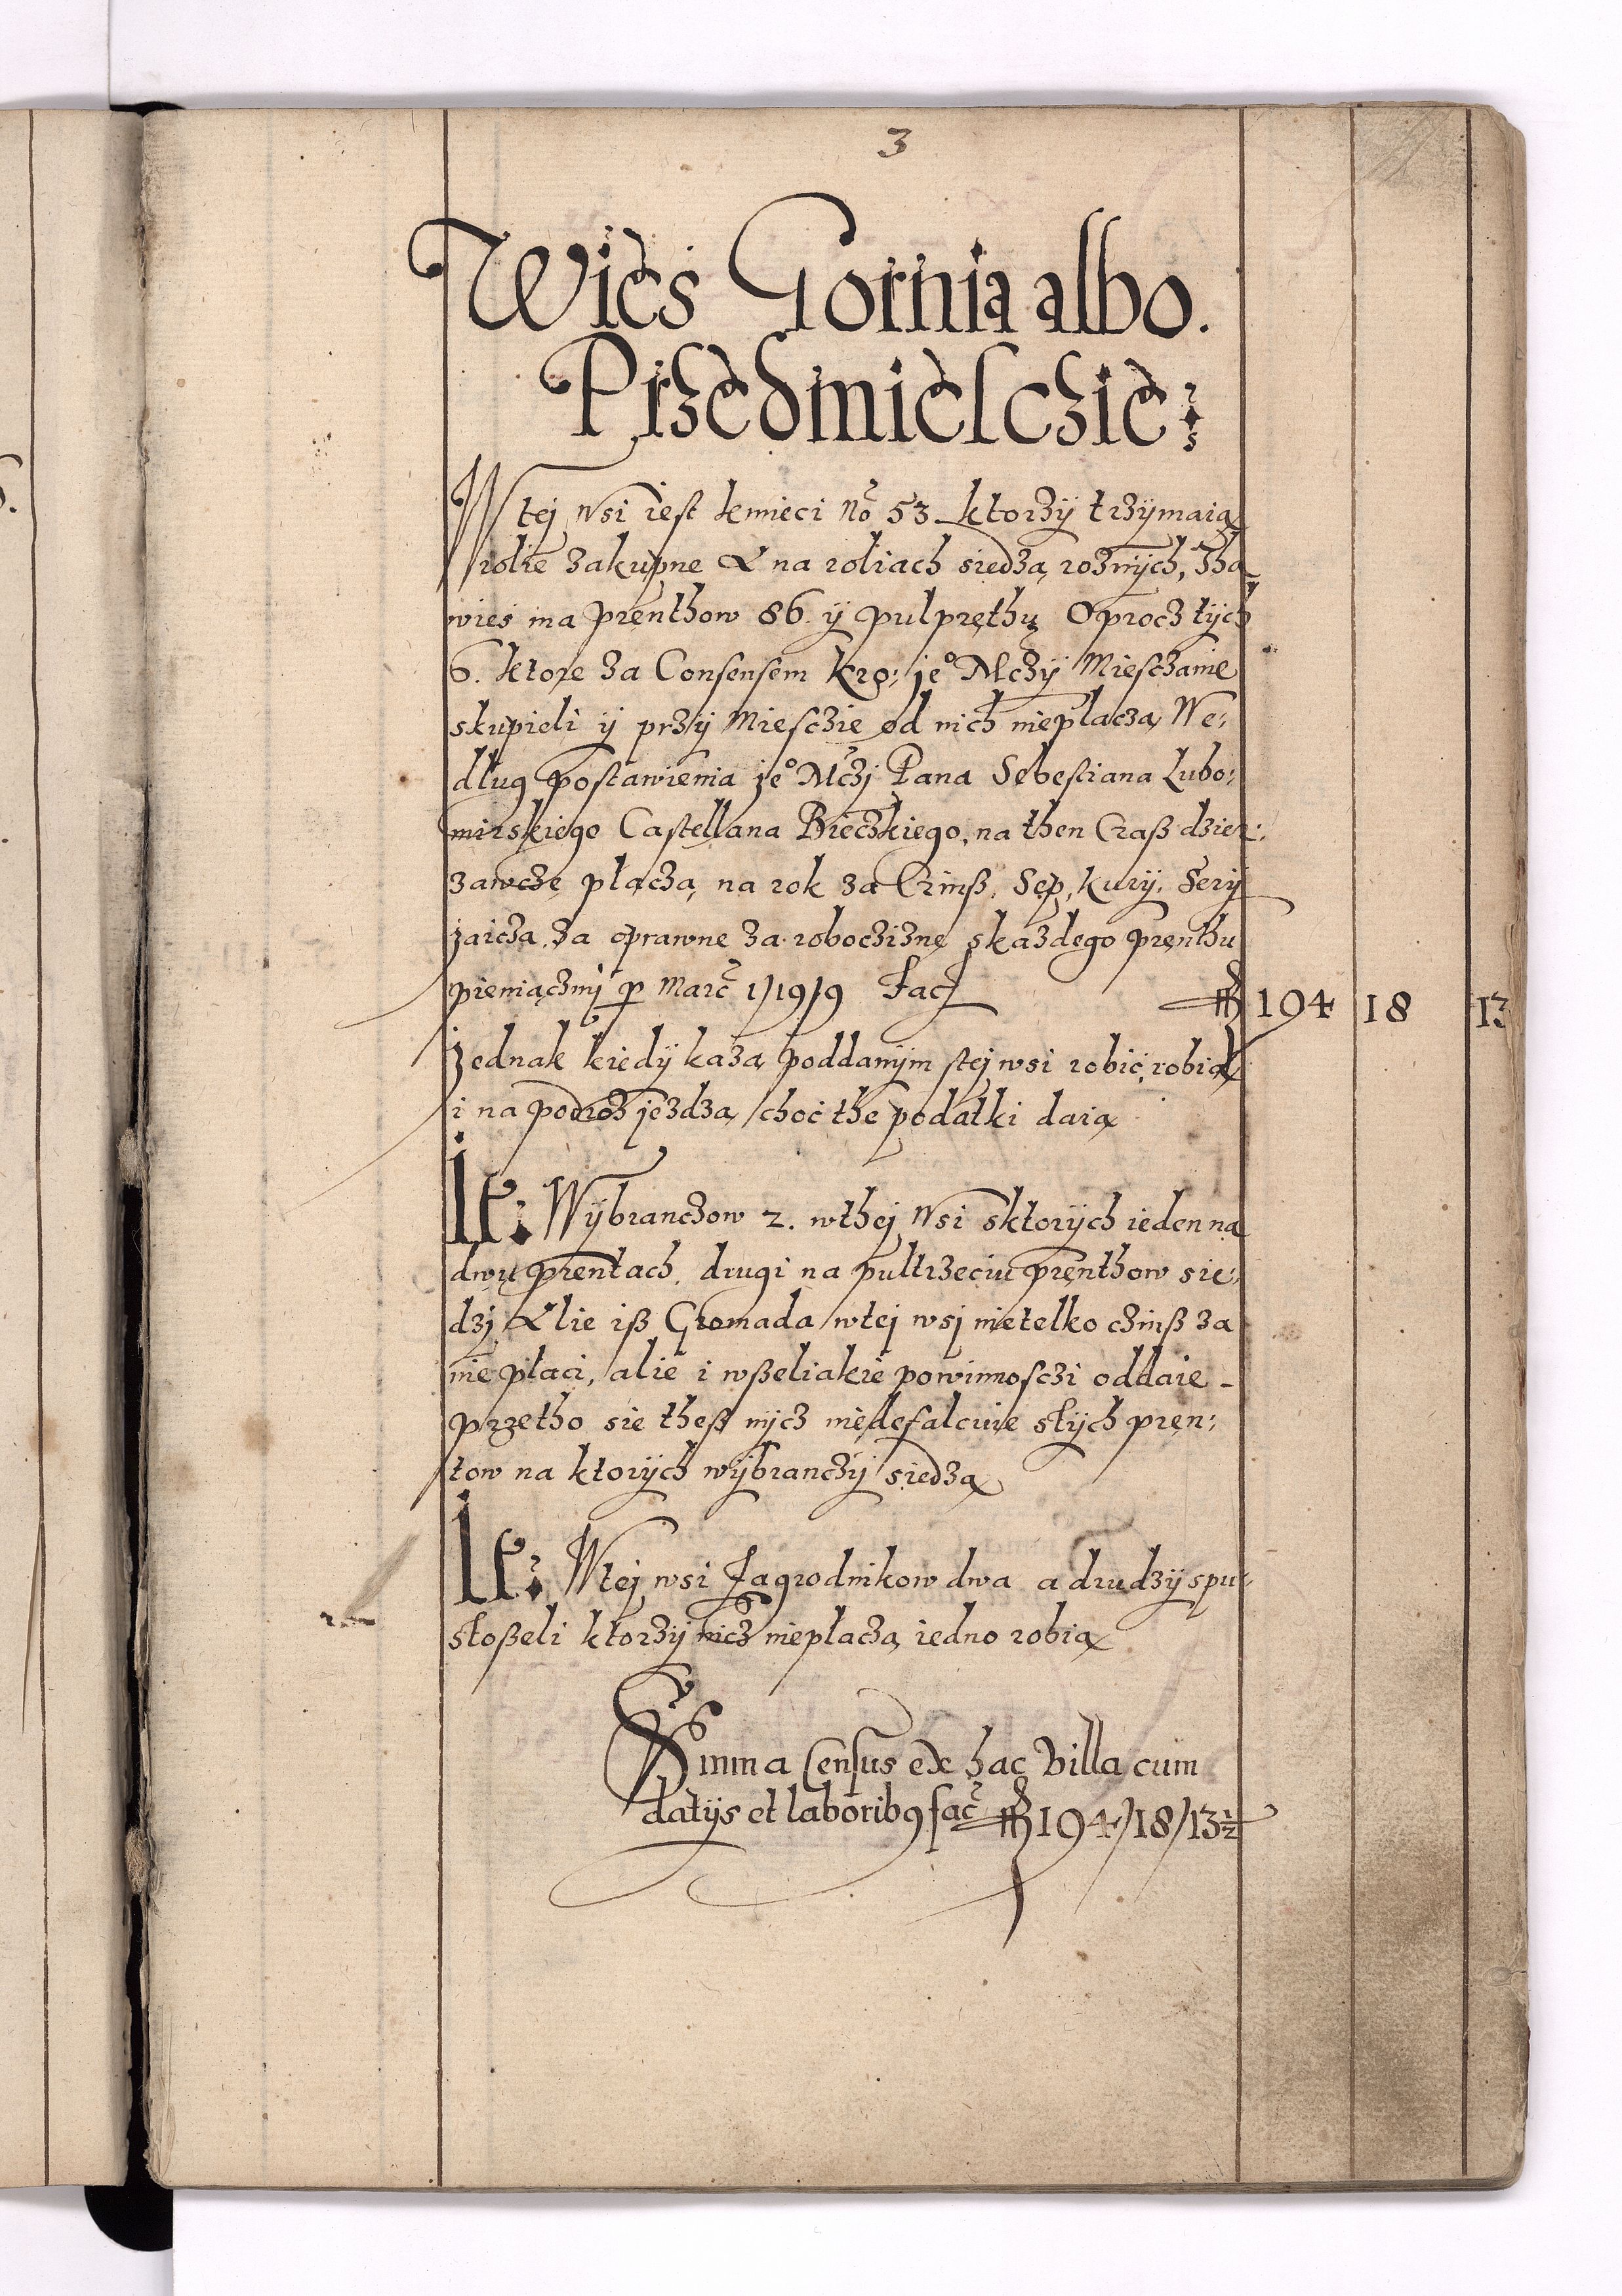 3
Wies Gornia albo.
Przedmiesczie:
W tej wsi iest kmieci No 53 ktorzÿ trzÿmaią
rolie zakupne A na roliach siedzą roznÿch, Tha
wies ma prenthow 86. ÿ pulpręthu Oprocz tÿch
6. ktore za Consensem kro: je° Mczÿ Miesczanie
skupieli ÿ przÿ Miesczie od nich nieplaczą We:
dlug postawienia je° Mczj Pana Sebestiana Lubo:
mirskiego Castellana Bieczkiego, na then Czaß dzier:
zawcze płaczą na rok za Czinß, Sep, kurÿ, Serÿ
jaicza, za oprawne za robociznę skazdego pręnthu
pieniączmj p Marc 1/19/9 Fac
fl 194 18 13
Jednak kiedÿ kazą poddanÿm stej wsi robic, robią
i na podroz jezdzą choc the podatki daią
It: Wÿbranczow 2. wthej Wsi sktorÿch ieden na
dwu prentach, drugi na pultrzeciu pręnthow sie:
dzj Alie iß Gromada wtej wsj nietelko czinß za
nie płaci, alie i wßeliakie powinnosczi oddaie -
przetho sie theß nÿcz niedefalcuie stÿch pren:
tow na ktorÿch wÿbranczÿ siedzą
It: Wtej wsi Zagrodnikow dwa a drudzÿ spu:
stoßeli ktorzÿ nicz nieplaczą iedno robią
Summa Census ex hac Villa cum
datÿs et laborib9 fac fl 194/18/13½